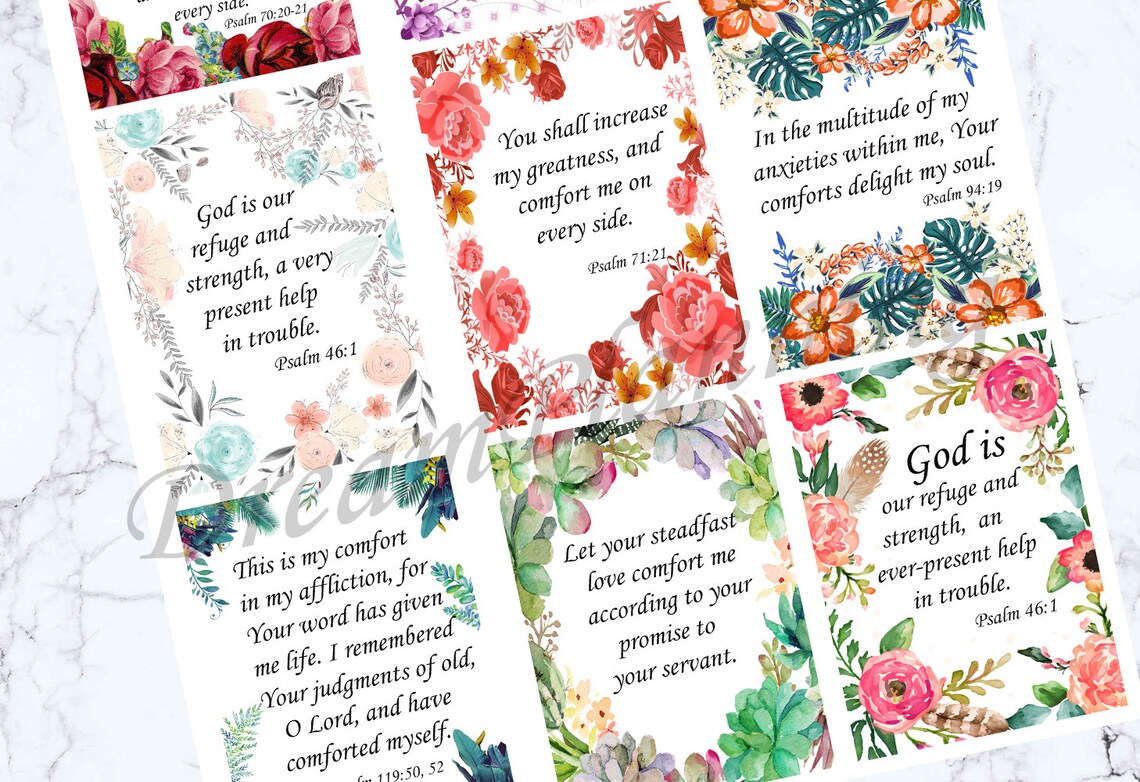 every side.
Psalm 70:20-21
God is our
refuge and
strength, a very
present help
in trouble.
Psalm 46:1
You shall increase
my greatness, and
comfort me on
every side.
Psalm 71:21
In the multitude of my
anxieties within me, Your
comforts delight my soul.
Psalm 94:19
This is my comfort
in my affliction, for
Your word has given
me life. I remembered
Your judgments of old,
O Lord, and have
comforted myself.
119:50, 52
Let your steadfast
love comfort me
according to your
promise to
your servant.
God is
our refuge and
strength, an
ever-present help
in trouble.
Psalm 46:1